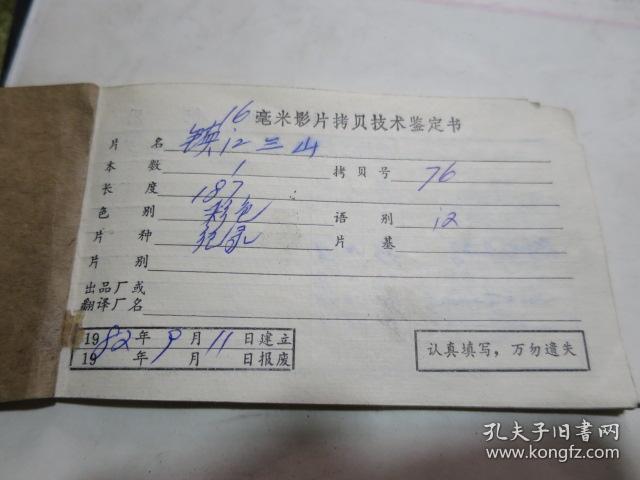 16毫米影片拷贝技术鉴定书
片名 镇江三山
本数 1 拷贝号 76
长度 187
色别 彩色 语别 江
片种 纪录 片基
片别
出品厂或
翻译厂名
1982年9月11日建立
19 年 月 日报废
认真填写，万勿遗失
孔夫子旧书网
kongfz.com